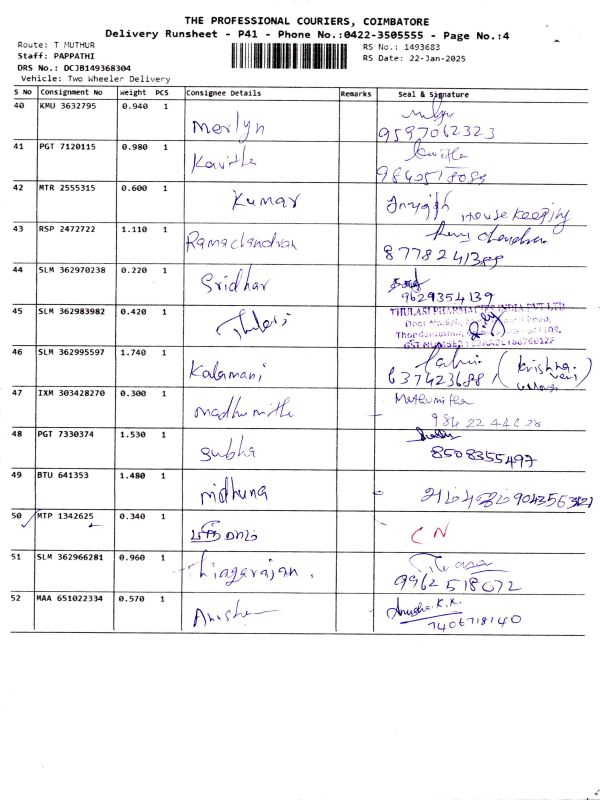 THE PROFESSIONAL COURIERS, COIMBATORE
Delivery Runsheet - P41 - Phone No.:0422-3505555 - Page No.:4
Route: T MUTHUR
RS No.: 1493683
Staff: PAPPATHI
RS Date: 22-Jan-2025
DRS No.: DCJB149368304
Vehicle: Two Wheeler Delivery
S No Consignment No Weight PCS Consignee Details Remarks Seal & Signature
40 KMU 3632795 0.940 1
Merlyn 9597062323
41 PGT 7120115 0.980 1
Kavitha
42 MTR 2555315 0.600 1
Kumar House keeping
43 RSP 2472722 1.110 1
Ramachandran
8778241389
44 SLM 362970238 0.220 1
Sridhar
9629354139
45 SLM 362983982 0.420 1
THULASI PHARMACIES INDIA PVT LTD
46 SLM 362995597 1.740 1
Kalamani
47 IXM 303428270 0.300 1
Madhumitha
48 PGT 7330374 1.530 1
Subha 8508355497
49 BTU 641353 1.480 1
Midhuna
50 MTP 1342625 0.340 1
CN
51 SLM 362966281 0.960 1
Thiagarajan.
9962518072
52 MAA 651022334 0.570 1
Anusha.K.K.
7406718140